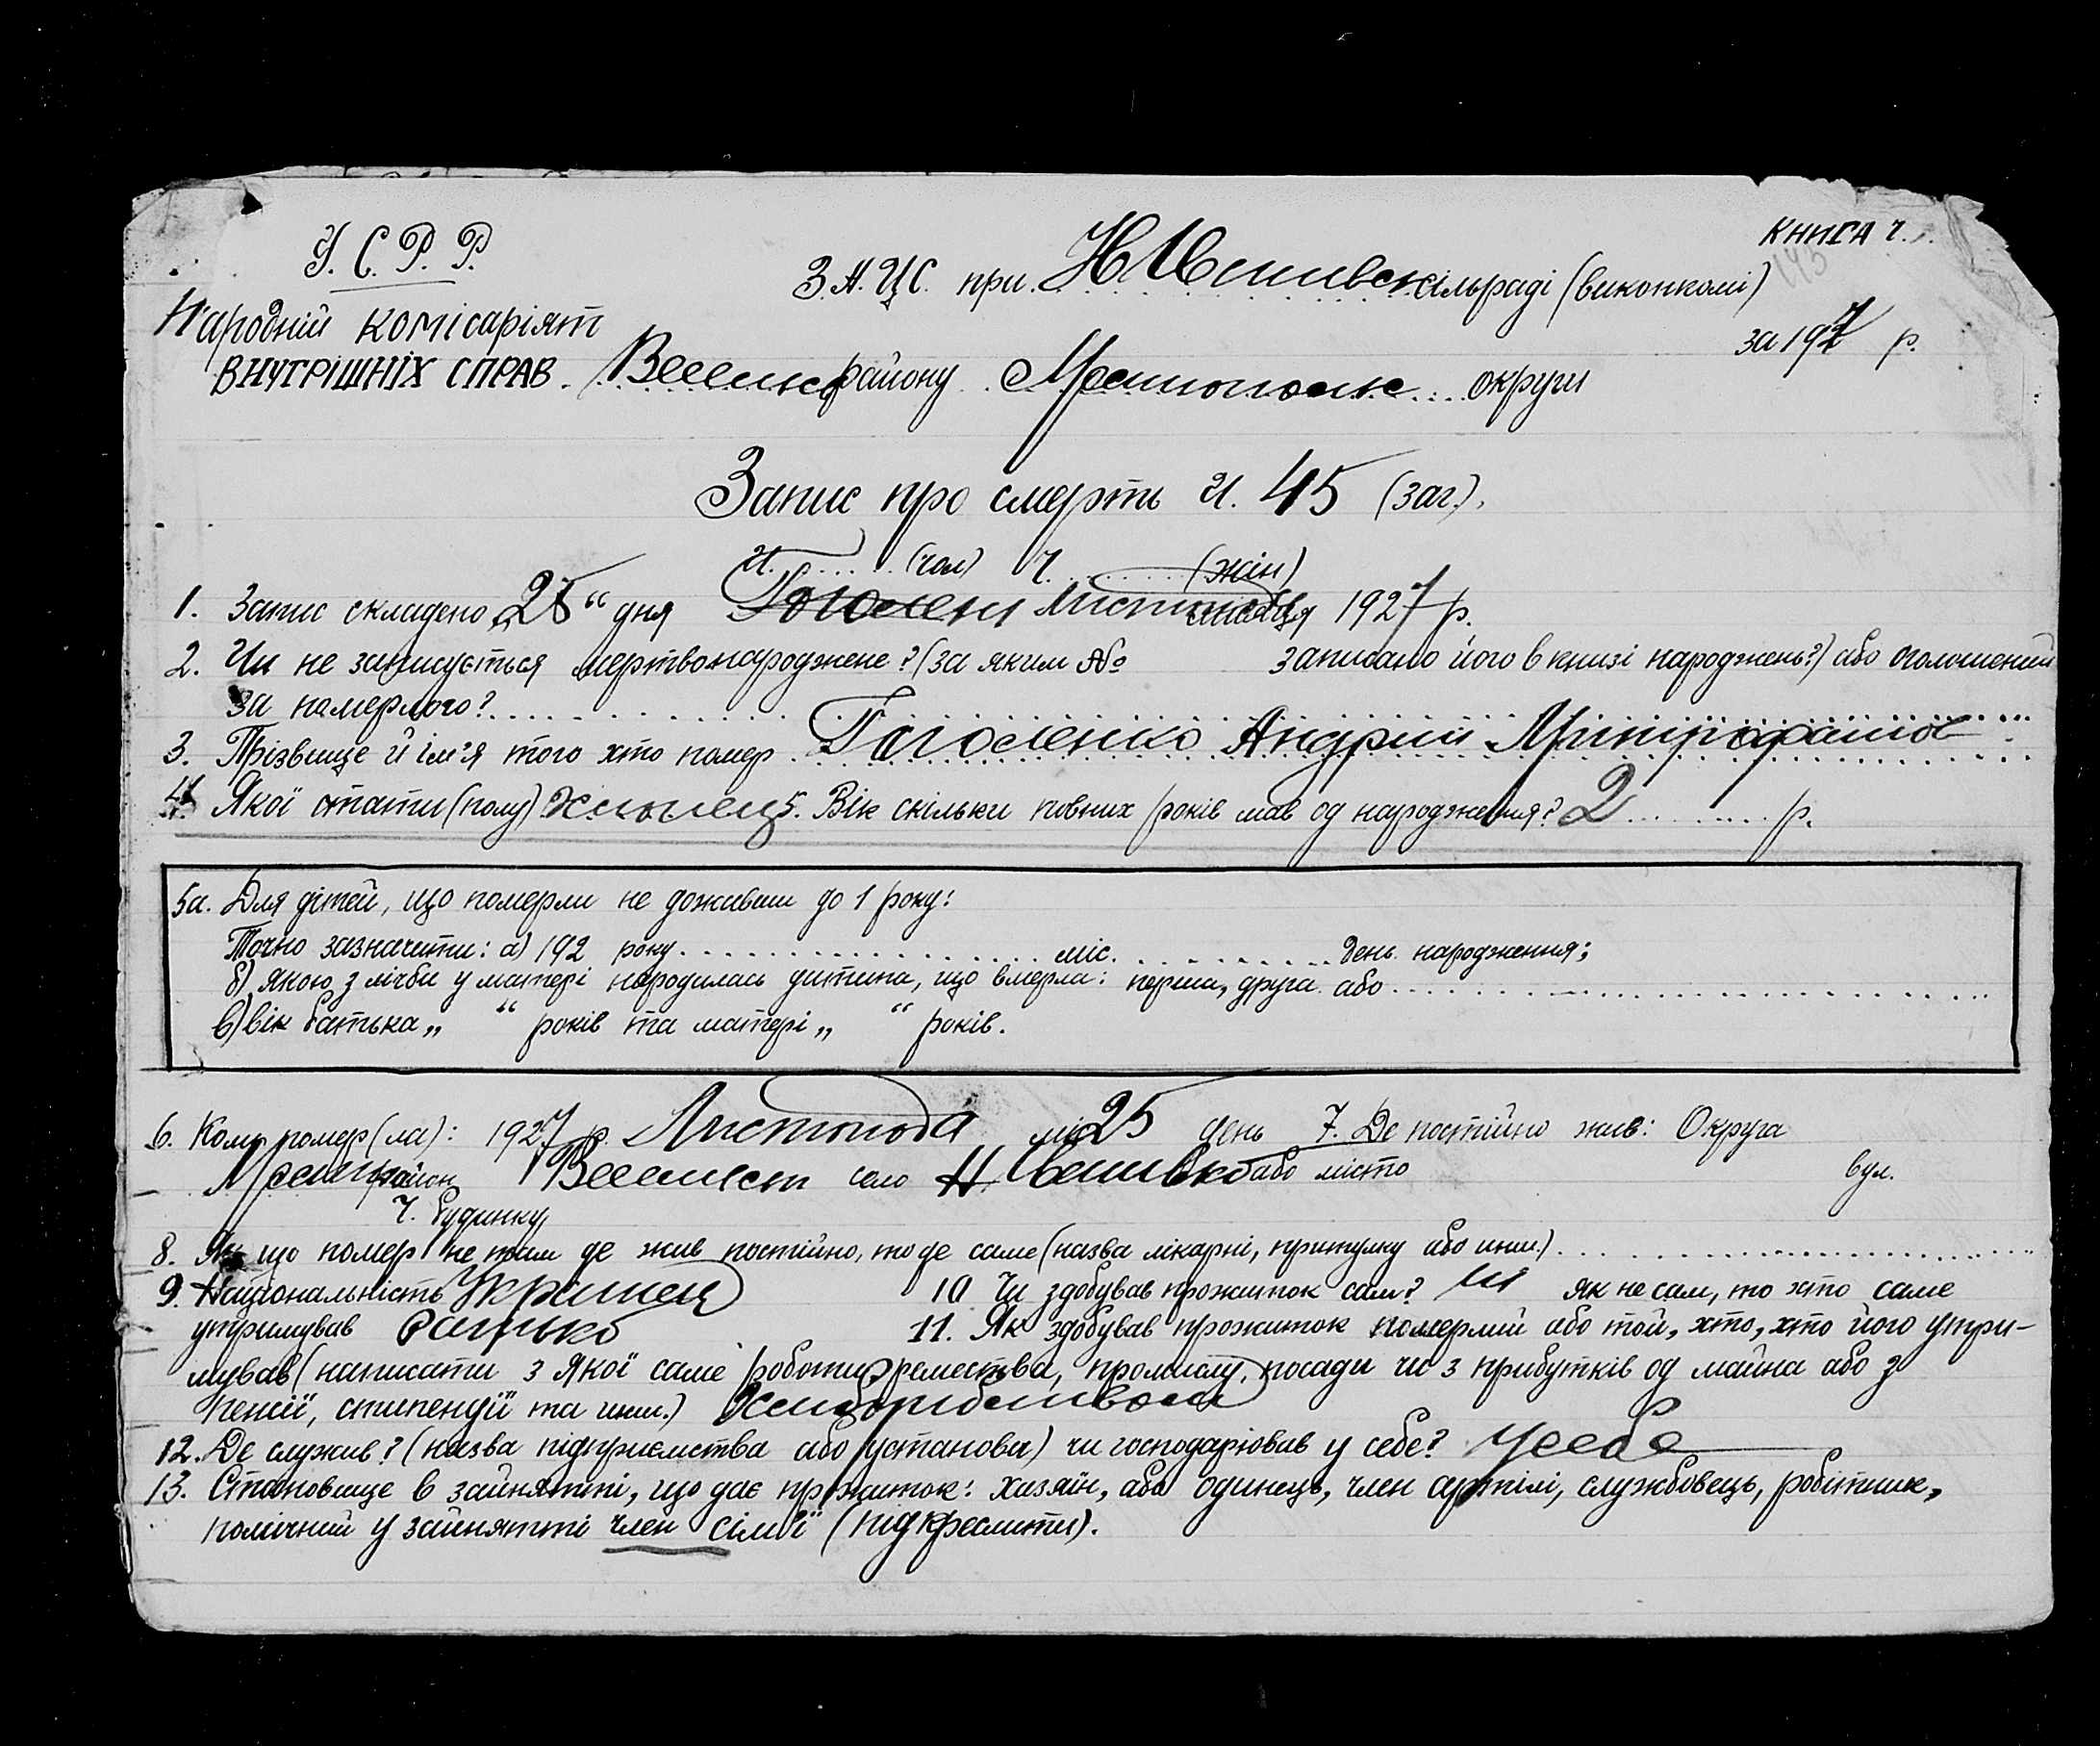 У.С.Р.Р.
Народній комісаріят
ВНУТРІШНІХ СПРАВ.
КНИГА Ч.
З.А.Ц.С. при Н Ивнивск сільраді (виконкомі)
за 1927 р.
району округи
Запис про смерть Ч. 45 (заг.).
Ч. (чол) Ч. (жін)
1. Запис складено „25“ дня Листопада місяця 1927 р.
2. Чи не записується мертвонароджене? (за яким № записано його в книзі народжень?) або оголошений
за померлого?
3. Прізвище й ім'я того хто помер Гоголенко Андрій Митрофанов
4. Якої стати (полу) хлопець 5. Вік скільки повних років мав од народження? 2 р.
5а. Для дітей, що померли не доживши до 1 року:
Точно зазначити: а) 192 року міс. день народження;
б) якою з лічби у матері народилась дитина, що вмерла: перша, друга або
в) вік батька „ “ років та матері „ “ років.
6. Коли помер (ла): 1927 р. Листопода міс 25 день 7. Де постійно жив: Округа
район село або місто вул.
Ч. будинку
8. Як що помер не там де жив постійно, то де саме (назва лікарні, притулку або инш.)
9. Національність Украінец 10 Чи здобував прожиток сам? ні як не сам, то хто саме
утримував батько 11. Як здобував прожиток померлий або той, хто, хто його утри-
мував (написати з якої саме роботи, ремества, промислу, посади чи з прибутків од майна або з
пенсії, стипендії та инш.) Хліборобством
12. Де служив? (назва підприємства або установи) чи господарював у себе? У себе
13. Становище в зайнятті, що дає прожиток: хазяїн, або одинець, член артілі, службовець, робітник,
помічний у зайнятті член сім'ї (підкреслити).